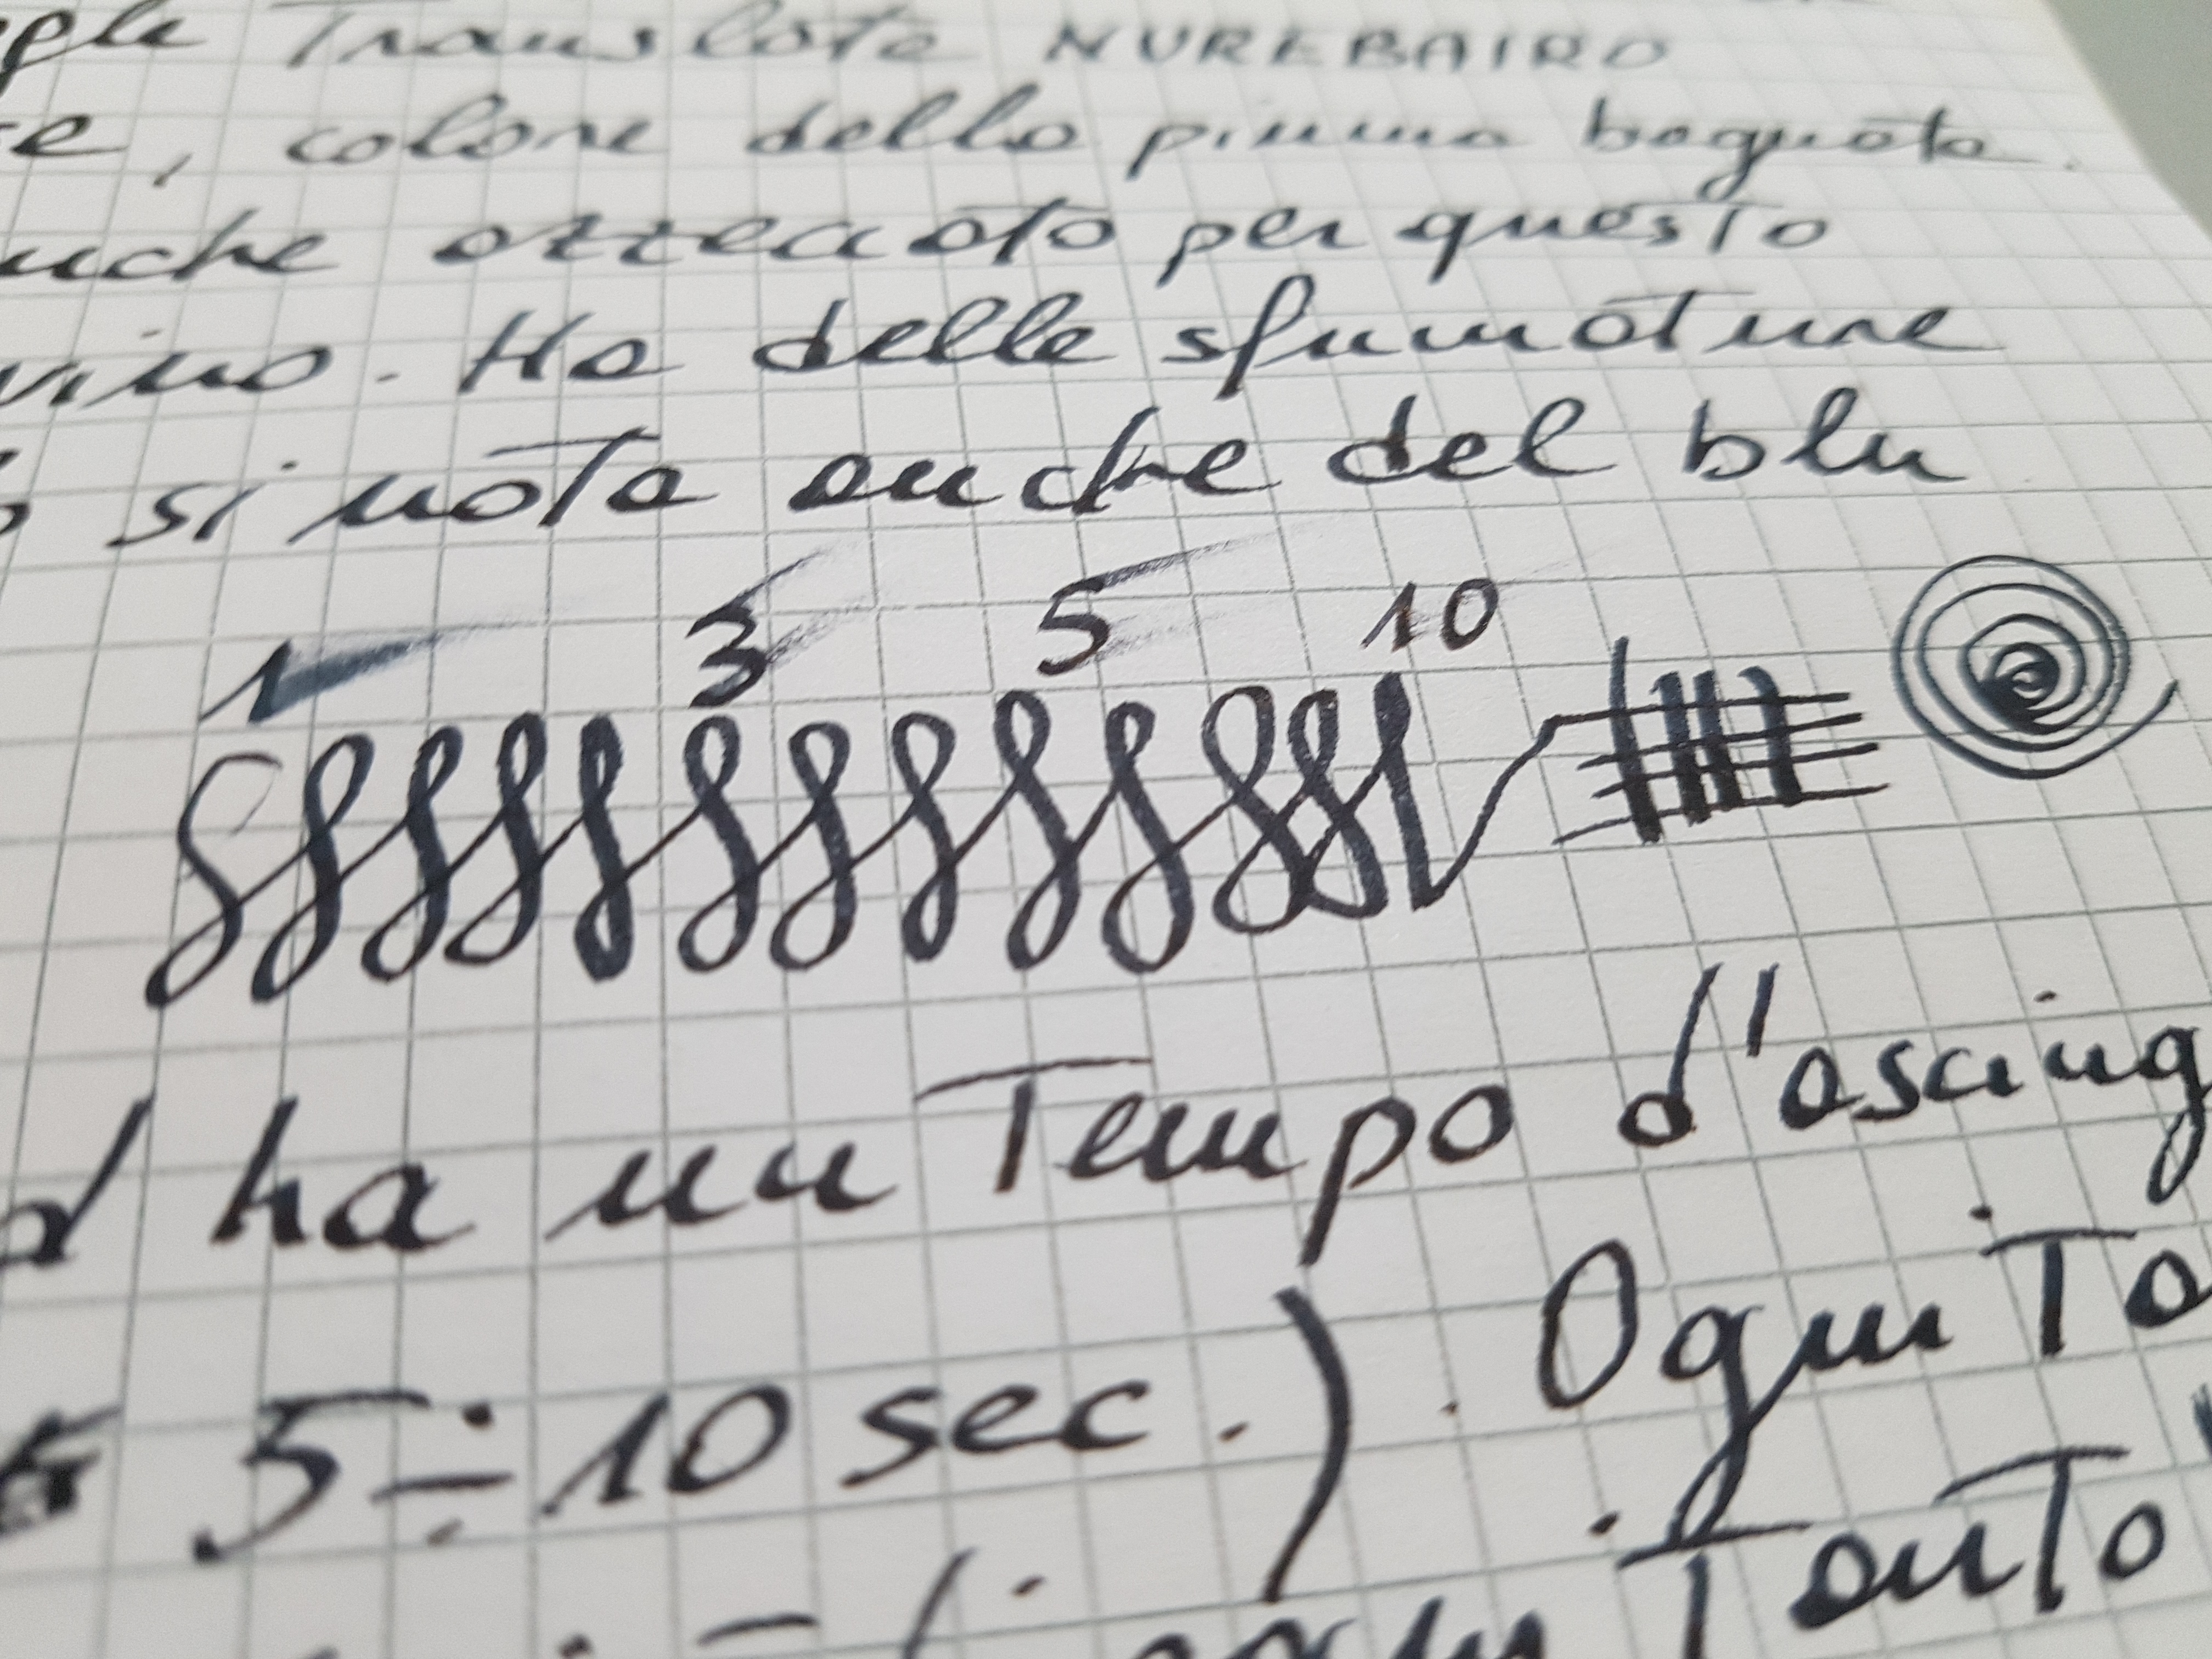 Translate NUREBAIRO
, colore della piuma bagnata.
azzeccato per questo
. Ha delle sfumature
si nota anche del blu
1 3 5 10
ha un Tempo d'asciug
5÷10 sec.). Ogni Ta
Tanto